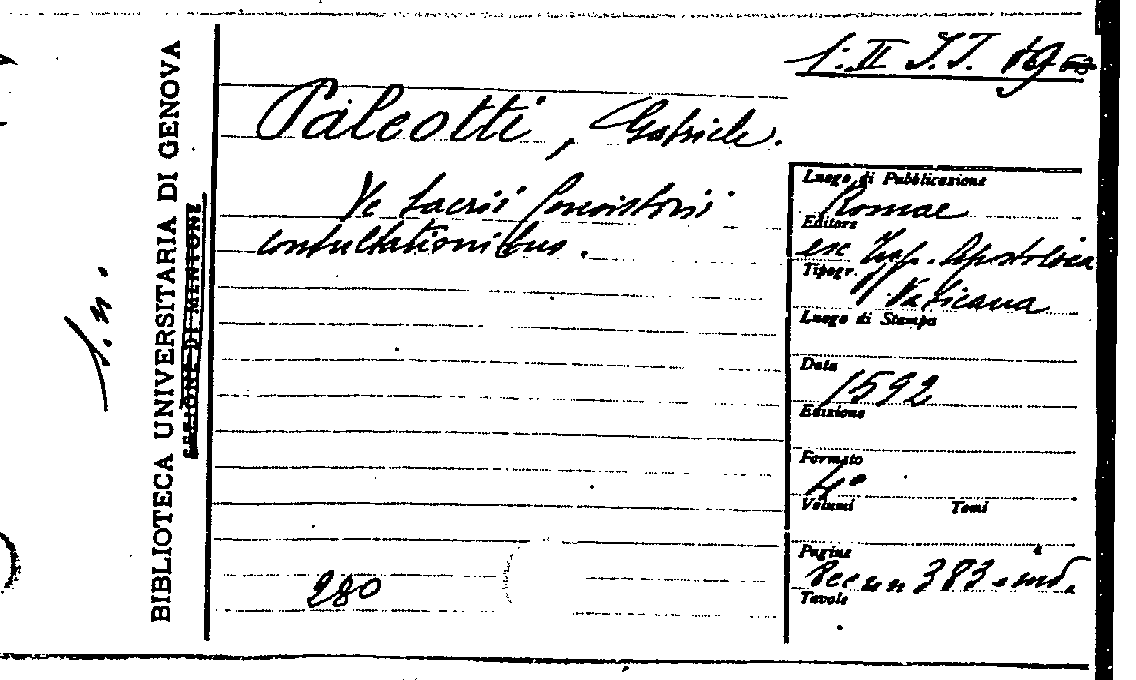 BIBLIOTECA UNIVERSITARIA DI GENOVA
SEZIONE DI MENTONE
s.n.
1. II S.I. 19
Paleotti, Gabriele.
De sacri Concistorii
consultationibus.
280
Luogo di Pubblicazione
Romae
Editore
ex Typ. Apostolica
Tipogr.
Vaticana
Luogo di Stampa
Data
1592
Edizione
Formato
4°
Volumi Tomi
Pagine
383 ind.
Tavole